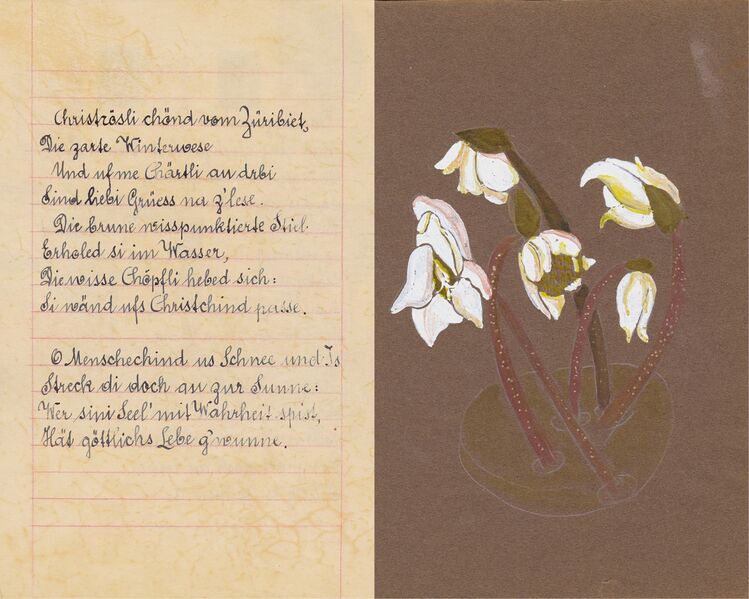 Christrösli chönd vom Züribiet,
Die zarte Winterwese
Und uf me Chärtli au drbi
Sind liebi Grüess na z'lese.
Die brune wisspunktierte Stiel
Erholed si im Wasser,
Die wisse Chöpfli hebed sich:
Si wänd ufs Christchind passe.
O Menschechind us Schnee und Is
Streck di doch au zur Sunne:
Wer sini Seel' mit Wahrheit spist,
Hät göttlichs Lebe g'wunne.